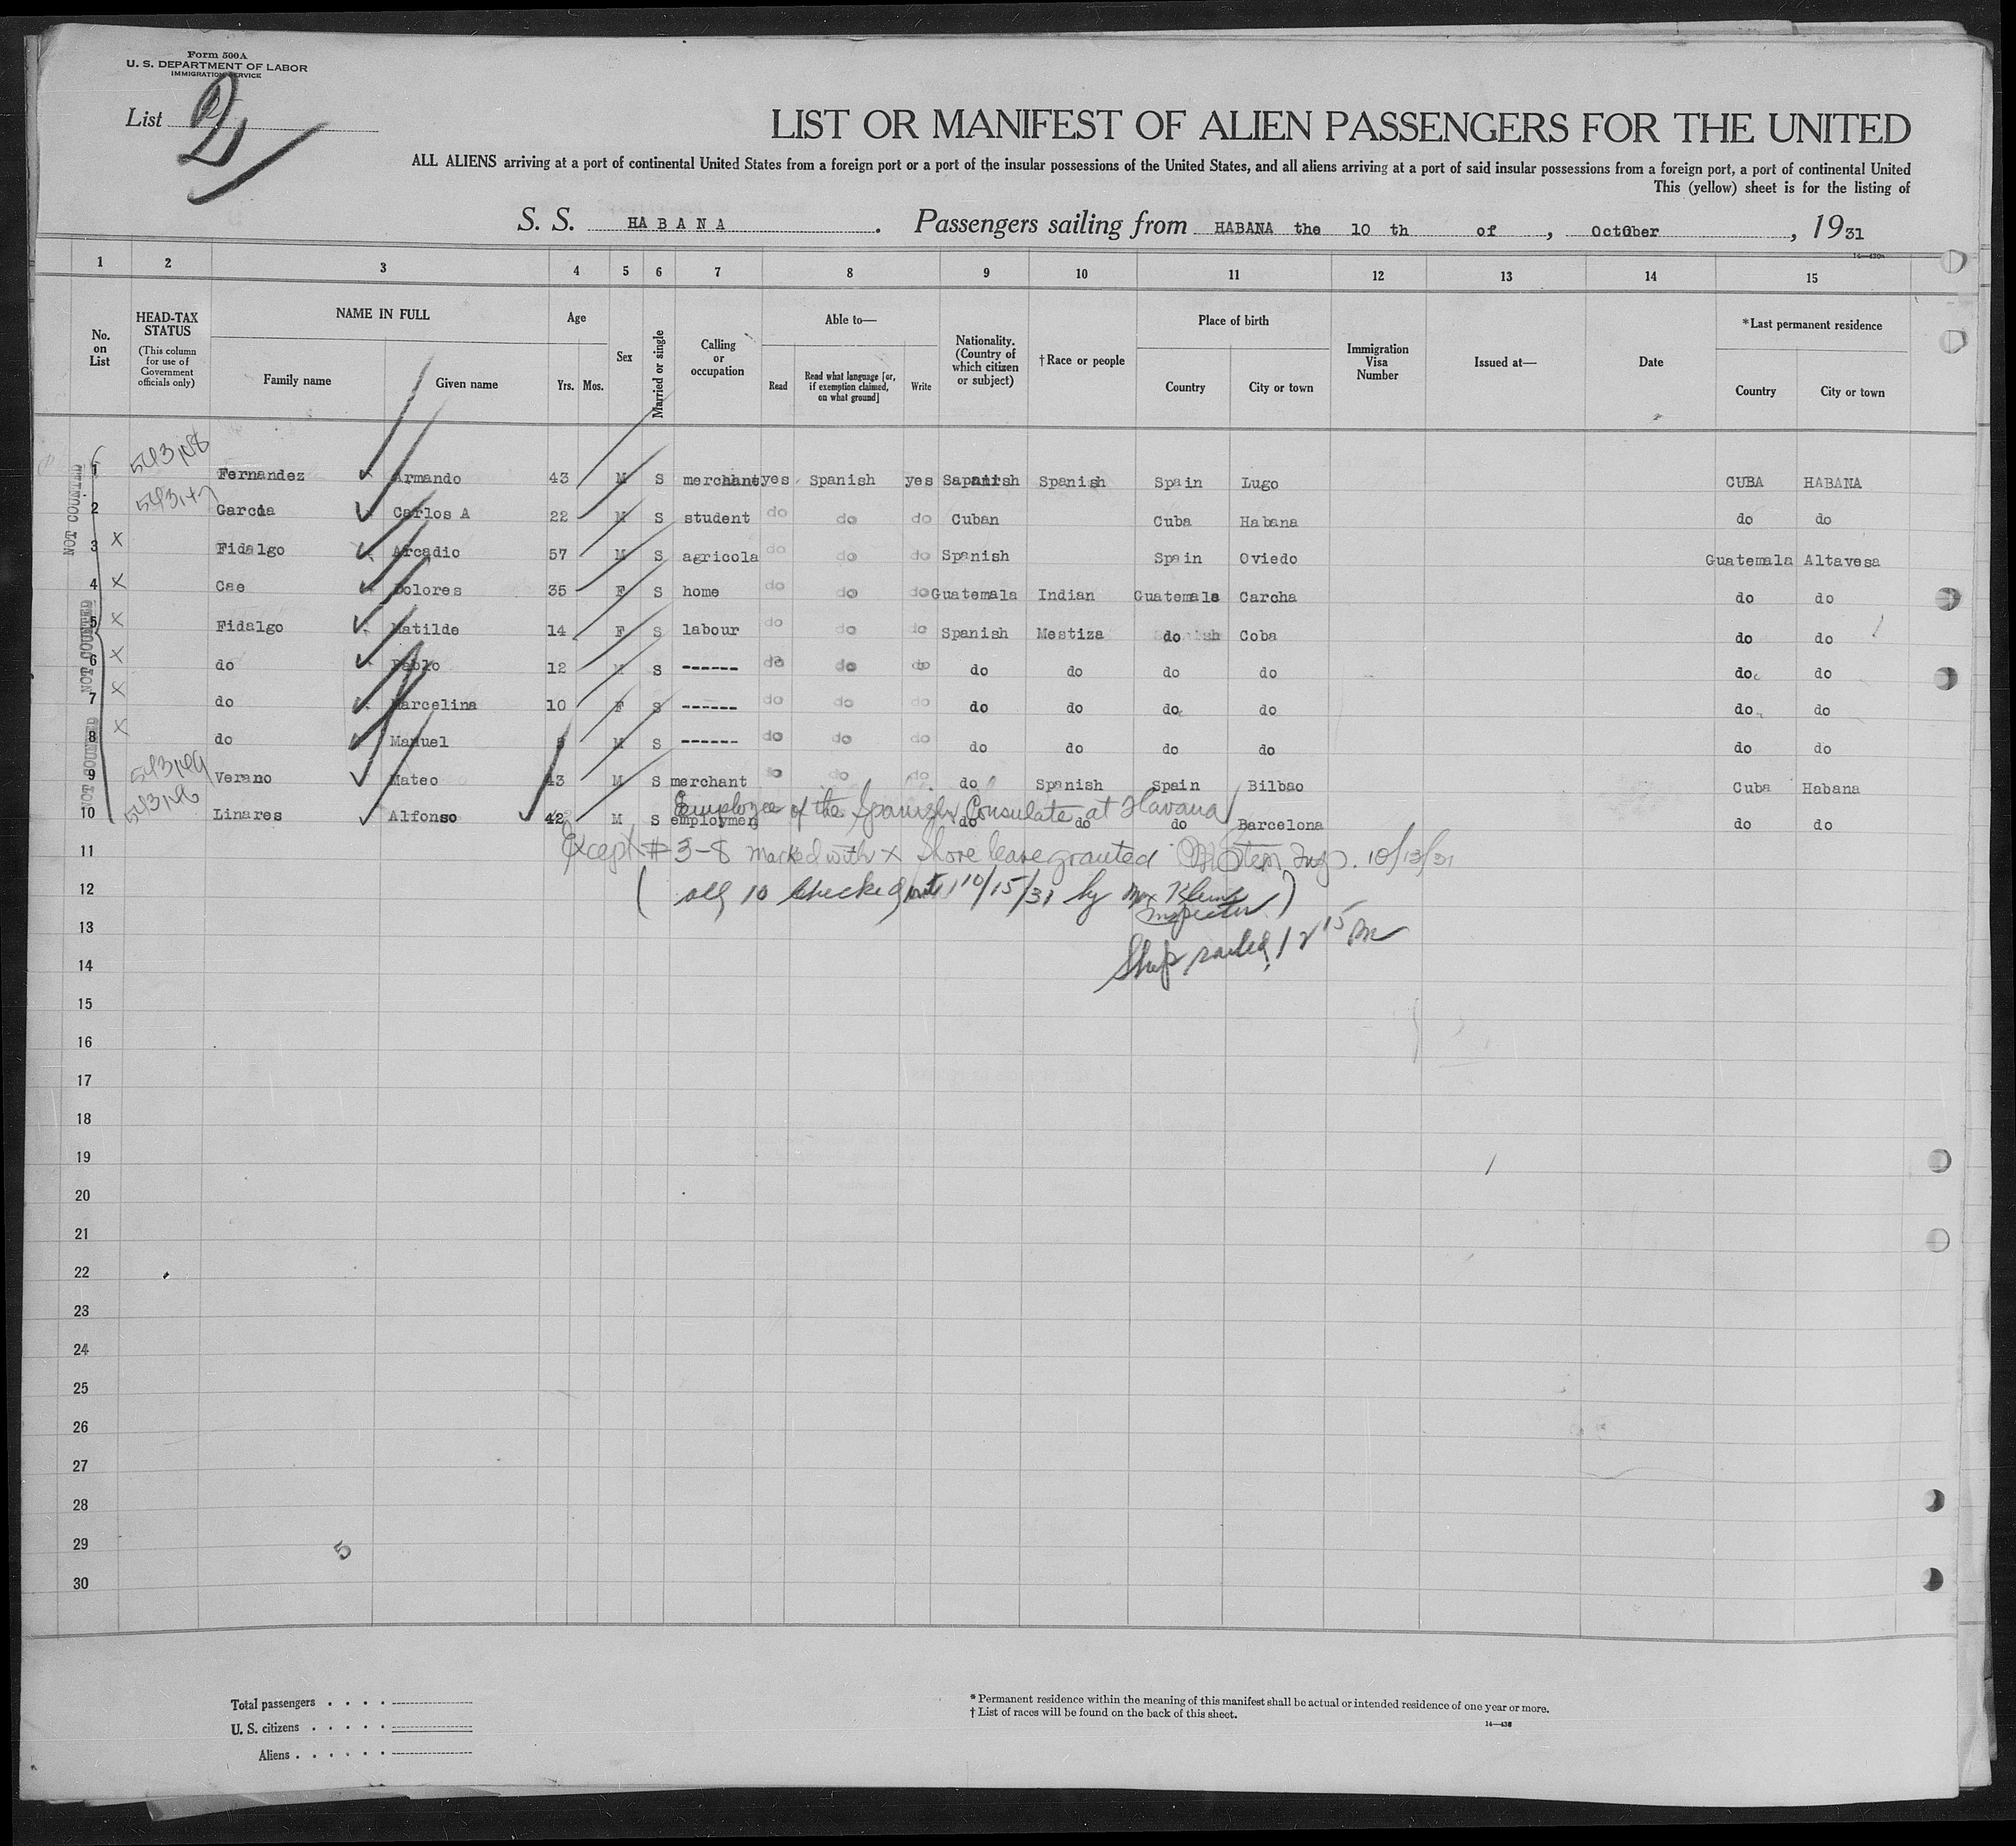 Form 500A
U. S. DEPARTMENT OF LABOR
IMMIGRATION SERVICE
List 2
LIST OR MANIFEST OF ALIEN PASSENGERS FOR THE UNITED
ALL ALIENS arriving at a port of continental United States from a foreign port or a port of the insular possessions of the United States, and all aliens arriving at a port of said insular possessions from a foreign port, a port of continental United
This (yellow) sheet is for the listing of
S. S. HABANA. Passengers sailing from HABANA the 10 th of, October, 1931
1 2 3 4 5 6 7 8 9 10 11 12 13 14 15
No. on List
HEAD-TAX STATUS
(This column for use of Government officials only)
NAME IN FULL
Family name
Given name
Age
Yrs. Mos.
Sex
Married or single
Calling or occupation
Able to—
Read
Read what language [or, if exemption claimed, on what ground]
Write
Nationality. (Country of which citizen or subject)
†Race or people
Place of birth
Country
City or town
Immigration Visa Number
Issued at—
Date
*Last permanent residence
Country
City or town
NOT COUNTED
NOT COUNTED
NOT COUNTED
1 Fernandez Armando 43 M S merchant yes Spanish yes Spanish Spanish Spain Lugo CUBA HABANA
2 Garcia Carlos A 22 M S student do do do Cuban Cuba Habana do do
3 X Fidalgo Arcadio 57 M S agricola do do do Spanish Spain Oviedo Guatemala Altavesa
4 X Cae Dolores 35 F S home do do do Guatemala Indian Guatemala Carcha do do
5 X Fidalgo Matilde 14 F S labour do do do Spanish Mestiza do Coba do do
6 X do Pablo 12 M S ------ do do do do do do do do do
7 X do Marcelina 10 F S ------ do do do do do do do do do
8 X do Manuel M S ------ do do do do do do do do do
9 Verano Mateo 43 M S merchant do do do do Spanish Spain Bilbao Cuba Habana
Employee of the Spanish Consulate at Havana
10 Linares Alfonso 42 M S employmen do do do Barcelona do do
11 Except # 3-8 marked with x shore leave granted Insp. 10/13/31
12 (all 10 checked out 10/15/31 by Inspector)
13
Ship sailed 12 15 PM
14
15
16
17
18
19
20
21
22
23
24
25
26
27
28
29
5
30
Total passengers . . . .
U. S. citizens . . . . .
Aliens . . . . . .
* Permanent residence within the meaning of this manifest shall be actual or intended residence of one year or more.
† List of races will be found on the back of this sheet.